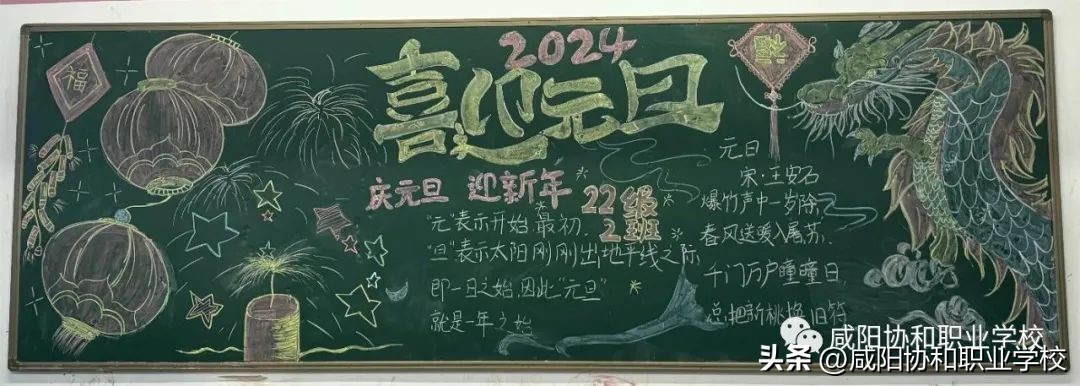 福
2024
喜迎元旦
福
庆元旦 迎新年
22级
2班
“元”表示开始 最初.
“旦”表示太阳刚刚出地平线之际
即一日之始,因此“元旦”
就是一年之始
元日
宋·王安石
爆竹声中一岁除,
春风送暖入屠苏.
千门万户曈曈日,
总把新桃换旧符
咸阳协和职业学校
头条@咸阳协和职业学校